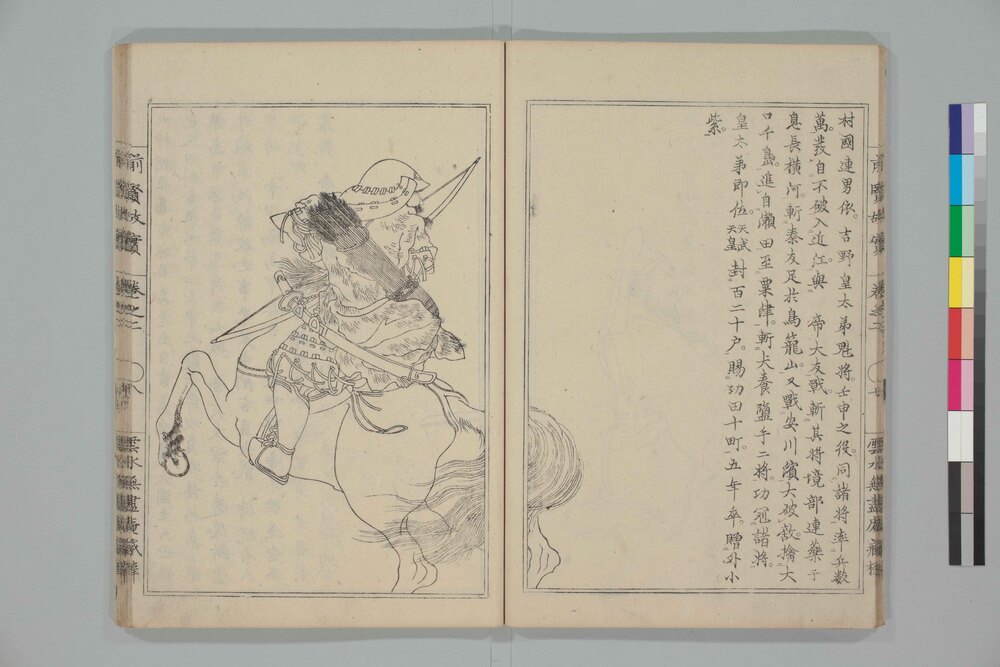 村國連男依。吉野皇太弟麾將。壬申之役。同諸將率兵數
萬。發自不破入近江與　帝大友戰。斬其將境部連藥于
息長橫河。斬秦友足於鳥籠山。又戰安川濱大破。敵擒大
口千島。進自瀨田至粟津。斬犬養鹽手二將。功冠諸將。
皇太弟即位。天武天皇封百二十戶。賜功田十町。五年卒。贈外小
紫。
前賢故實
卷之二
雲水無盡庵藏梓